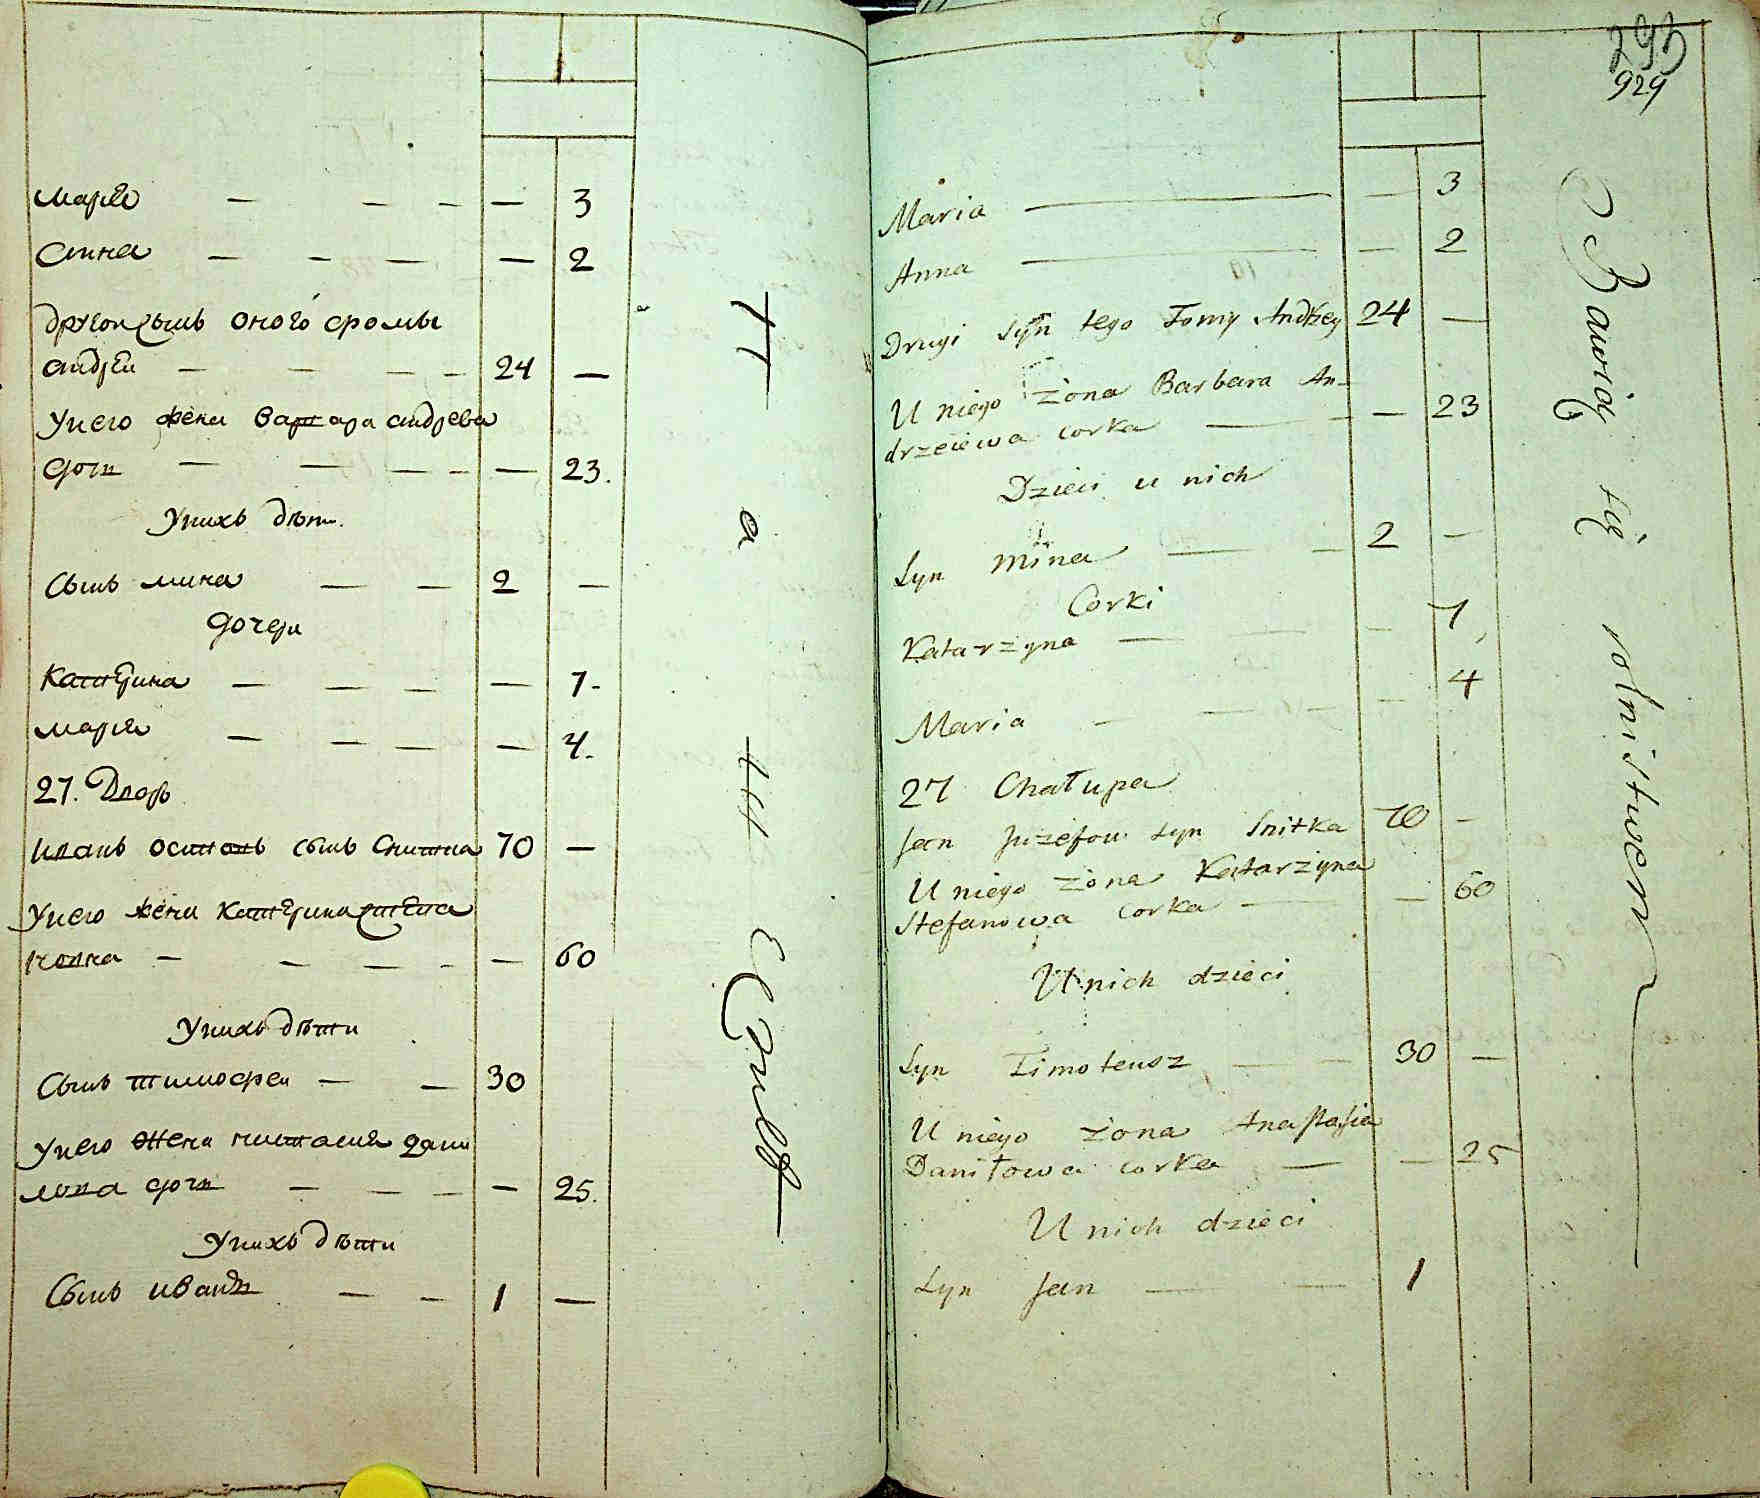 марья — — — — 3
анна — — — — 2
другои сынъ оного фомы
андрей — — — — 24 —
У него жена варвара андреева
дочь — — — — — 23.
У нихъ дѣти.
Сынъ мина — — 2 —
дочери
Катерина — — — — 7.
марья — — — — 4.
27. Дворъ
Иванъ осиповъ сынъ Снитка 70 —
У него жена Катерина степа
новна — — — — — 60
У нихъ дѣти
Сынъ тимофеи — — 30
У него жена настасия дани
лова дочь — — — — 25.
У нихъ дѣти
Сынъ иванъ — — 1 —
293
929
Maria — — 3
Anna — — 2
Drugi Syn tego Tomy Andrzey 24 —
U niego żona Barbara An-
drzeiewa corka — — — 23
Dzieci u nich
Syn Mina — — 2 —
Corki
Katarzyna — — — 7
Maria — — — — 4
27 Chałupa
Jan Juzefow Syn Snitka 70 —
U niego żona Katarzyna
Stefanowa corka — — 60
U nich dzieci
Syn Timoteusz — — 30 —
U niego żona Anastasia
Daniłowa corka — — 25
U nich dzieci
Syn Jan — — 1
Bawią się rolnistwem